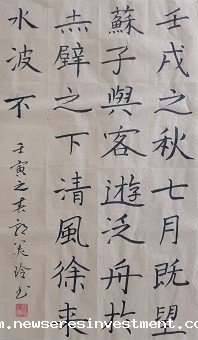 壬戌之秋七月既望
蘇子與客遊泛舟於
赤壁之下清風徐来
水波不
壬寅之春 美玲书
m.newseresinvestment.com